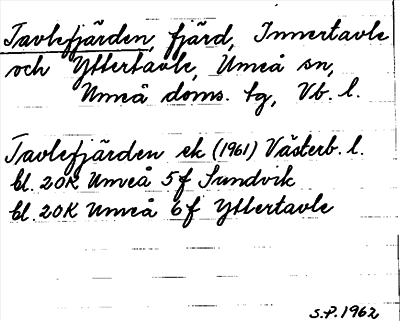 Tavlefjärden, fjärd, Innertavle
och Yttertavle, Umeå sn,
Umeå doms. tg, Vb. l.
Tavlefjärden ek (1961) Västerb. l.
bl. 20K Umeå 5f Sundvik
bl. 20K Umeå 6f Yttertavle
S.P. 1962